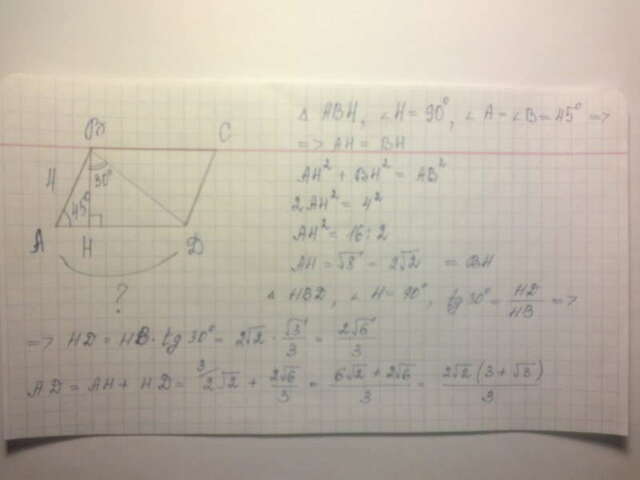 B C
4 30°
45°
A H D
?
△ ABH, ∠H = 90°, ∠A = ∠B = 45° =>
=> AH = BH
AH² + BH² = AB²
2AH² = 4²
AH² = 16 : 2
AH = √8 = 2√2 = BH
△ HBD, ∠H = 90°, tg 30° = HD/HB =>
=> HD = HB · tg 30° = 2√2 · √3/3 = 2√6/3
AD = AH + HD = ³⁄2√2 + 2√6/3 = 6√2 + 2√6/3 = 2√2(3 + √3)/3